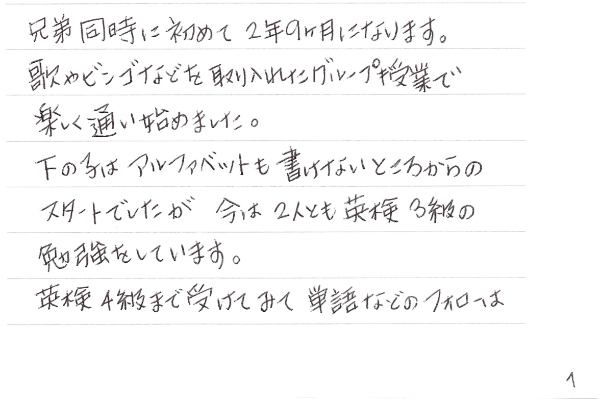 兄弟同時に初めて2年9ヶ月になります。
歌やビンゴなどを取り入れたグループ授業で
楽しく通い始めました。
下の子はアルファベットも書けないところからの
スタートでしたが 今は2人とも英検3級の
勉強をしています。
英検4級まで受けてみて単語などのフォローは
1